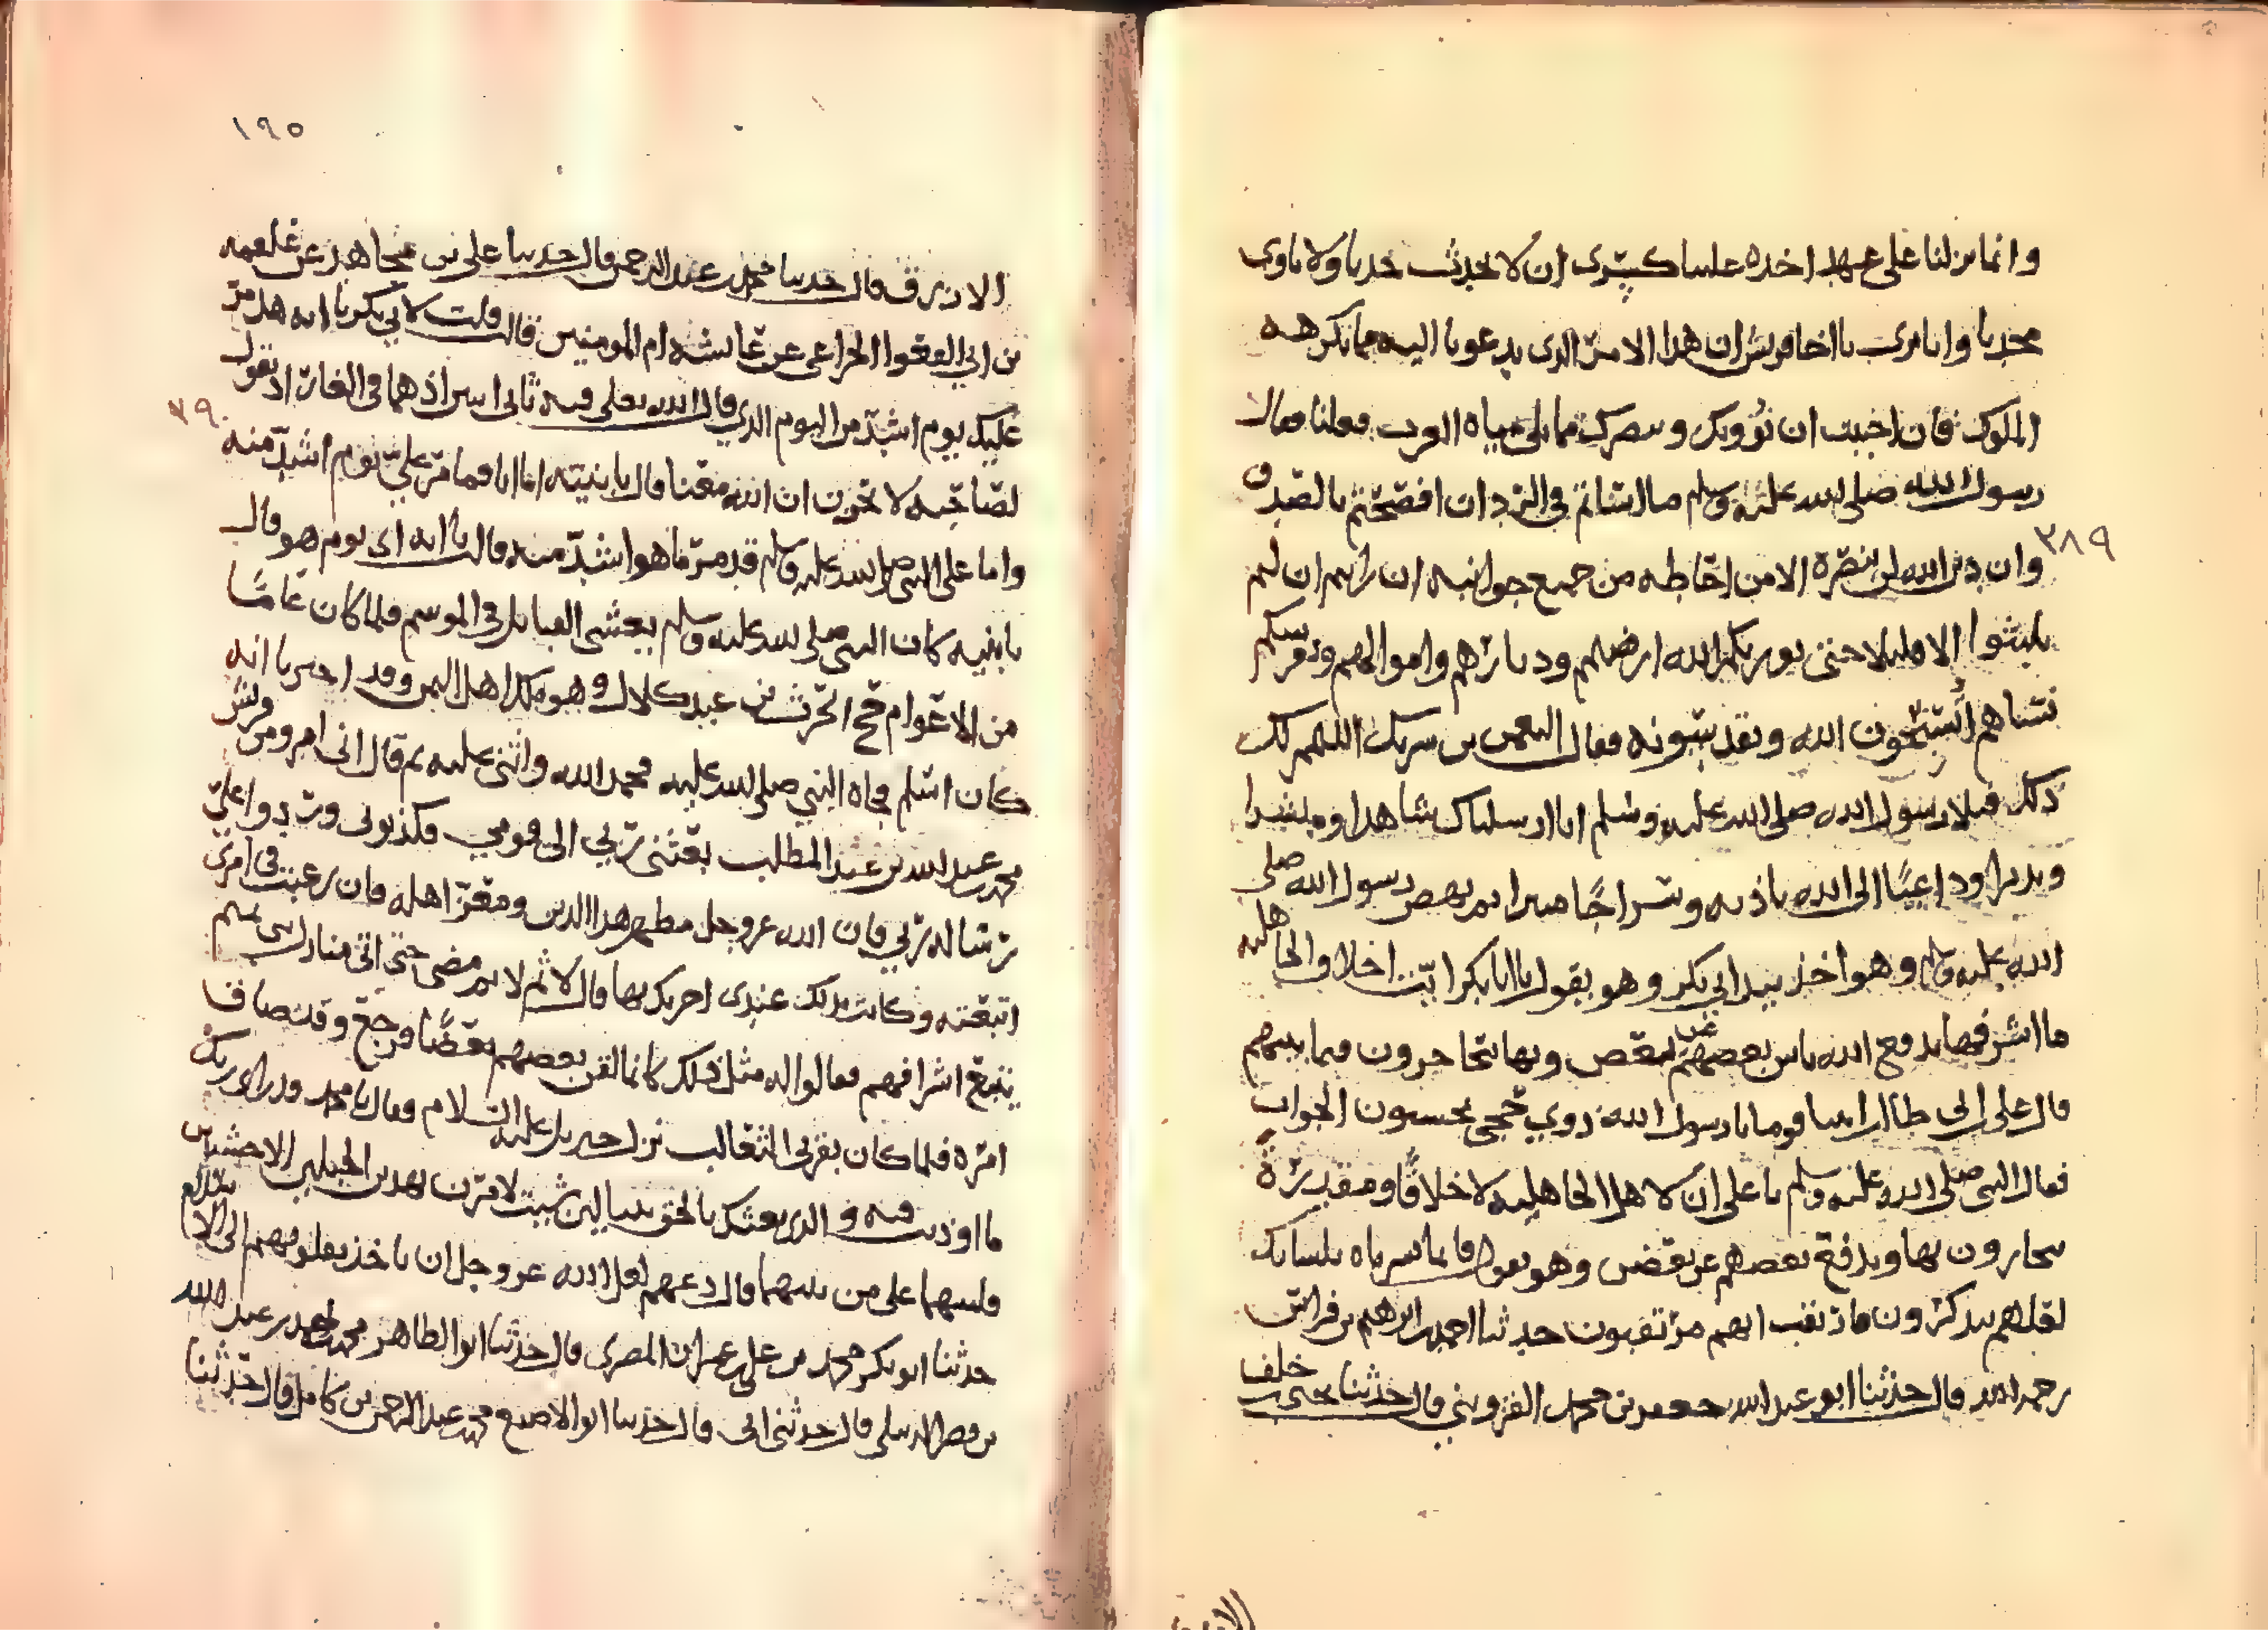 وانما نزلنا على عهد اخذه علينا كسرى ان لا نحدث حدثا ولا ناوى
محدثا وانا نرى يا اخا قريش ان هذا الامر الذى يدعونا اليه مما تكرهه
الملوك فان احببت ان نؤويك وننصرك مما يلى مياه العرب فعلنا فقال
رسول الله صلى الله عليه وسلم ما اسأتم فى الرد ان افصحتم بالصدق
٣٨٩
وان دين الله لن ينصره الا من احاطه من جميع جوانبه ان رايتم ان لم
يلبثوا الا قليلا حتى يورثكم الله ارضهم وديارهم واموالهم ويفرشكم
نساهم أتسبحون الله وتقدسونه فقال النعمن بن شريك اللهم لك
ذلك فتلا رسول الله صلى الله عليه وسلم انا ارسلناك شاهدا ومبشرا
ونذيرا وداعيًا الى الله باذنه وسراجًا منيرا ثم نهض رسول الله صلى
الله عليه وسلم وهو اخذ بيد ابي بكر وهو يقول يا ابا بكر ايت اخلاق الجاهليه
ما اشرفها يدفع الله باس بعضهم عن بعض وبها يتحاجزون فيما بينهم
قال على ابن ابى طالب اتينا قوما يا رسول الله ذوي حجى يحسنون الجواب
فقال النبى صلى الله عليه وسلم يا على ان لاهل الجاهليه لاخلاقًا ومقدرةً
يتجازون بها ويدفع بعضهم عن بعض وهو يقول فانما يسرناه بلسانك
لعلهم يتذكرون فارتقب انهم مرتقبون حدثنا احمد بن ابرهيم بن فراس
رحمه الله قال حدثنا ابو عبد الله جعفر بن محمد القزويني قال حدثنا يحيى بن خلف
١٩٥
الازرق قال حدثنا محمد بن عبد الرحمن قال حدثنا على بن مجاهد عن علقمه
بن ابي العقوا الخزاعى عن عايشه ام المومنين قالت قلت لابي بكر يا ابه هل مر
عليك يوم اشد من اليوم الذي قال الله تعلى فيه ثانى اثنين اذ هما فى الغار اذ يقول
٣٩٠
لصاحبه لا تحزن ان الله معنا قال يا بنيه اما انا فما مر علي يوم اشد منه
واما على النبى صلى الله عليه وسلم قد مر ما هو اشد منه قالت يا ابه اى يوم هو قال
يا بنيه كان النبى صلى الله عليه وسلم يغشى القبائل فى الموسم فلما كان عامًا
من الاعوام حج الحرث بن عبد كلال وهو ملك اهل اليمن وقد اخبرنا انه
كان اسلم فجاه النبي صلى الله عليه فحمد الله واثنى عليه ثم قال انى امرو من قريش
محمد بن عبد الله بن عبد المطلب بعثنى ربي الى قومي فكذبونى وردوا علي
رساله ربي فان الله عز وجل مظهر هذا الدين ومعز اهله فان رغبت فى امرى
اتبعته وكانت بذلك عندى اجزيك بها قال لا ثم لا ثم مضى حتى اتى منازل بنى تميم
يتبع اشرافهم فقالوا له مثل ذلك كانما لقن بعضهم بعضًا فرجع وقد صاف
امره فلما كان بقرن الثعالب نزل جبريل عليه السلام فقال يا محمد قد راى ربك
ما اوذيت فيه والذى بعثك بالحق نبيا لين شيت لامرن بهدين الجبلين الاخشبين
فلينهما على من بينهما قال دعهم لعل الله عز وجل ان ياخذ بقلوبهم الى الاسلام
حدثنا ابو بكر محمد بن على بن عمران المصرى قال حدثنا ابو الطاهر محمد بن احمد بن عبد الله
بن نصر الدهلى قال حدثنى ابى قال حدثنا ابو الاصبع محمد بن عبد الرحمن بن كامل قال حدثنا